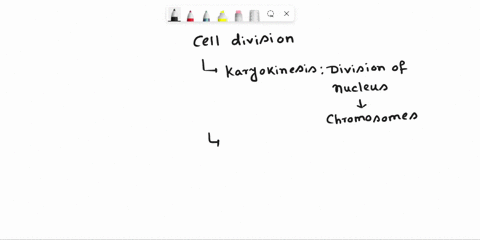 Cell division
Karyokinesis: Division of
nucleus
Chromosomes